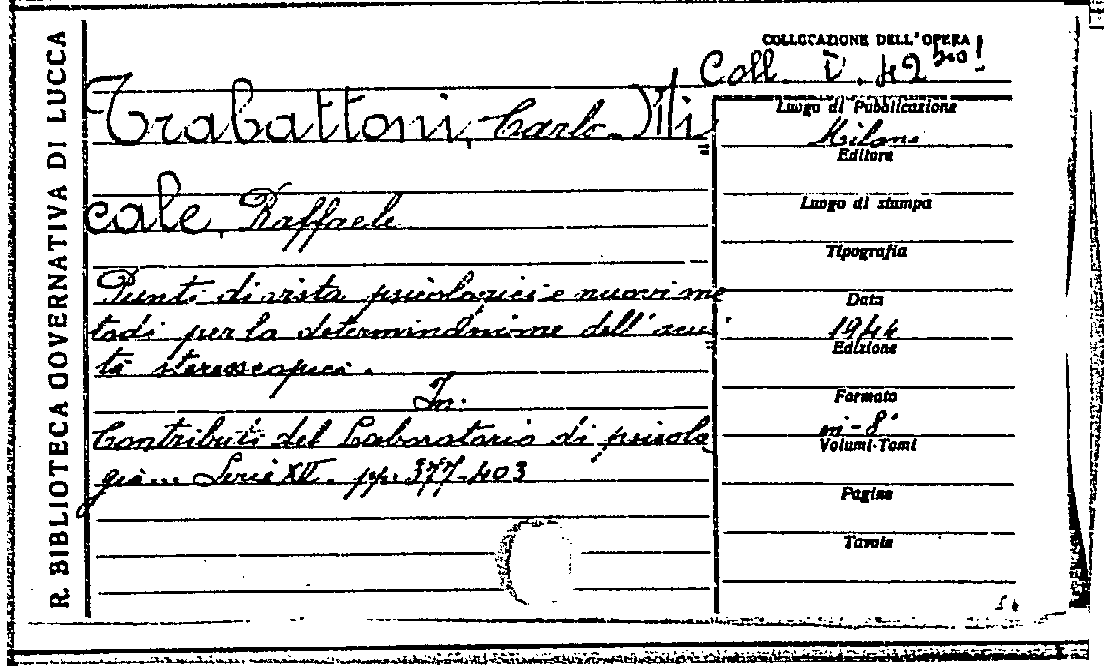 R. BIBLIOTECA GOVERNATIVA DI LUCCA
COLLOCAZIONE DELL'OPERA
Coll. V. 42
Trabattoni, Carlo
cale, Raffaele
Punti di vista psicologici e nuovi me
todi per la dell'acui
tà stereoscopica.
In:
Contributi del Laboratorio di psicolo
gia... Serie XII. pp. 377-403
Luogo di Pubblicazione
Milano
Editore
Luogo di stampa
Tipografia
Data
1944
Edizione
Formato
in-8°
Volumi-Tomi
Pagine
Tavole